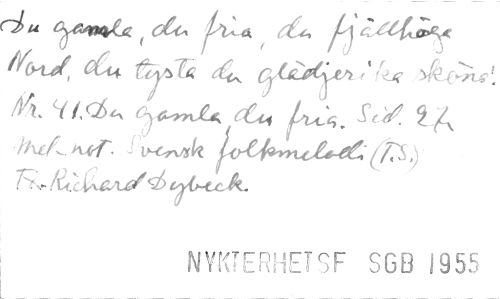 Du gamla, du fria, du fjällhöga
Nord, du tysta du glädjerika sköna!
Nr. 41. Du gamla, du fria. Sid. 27,
mel-not. Svensk folkmelodi (T.S.)
Tx. Richard Dybeck.
NYKTERHETSF SGB 1955